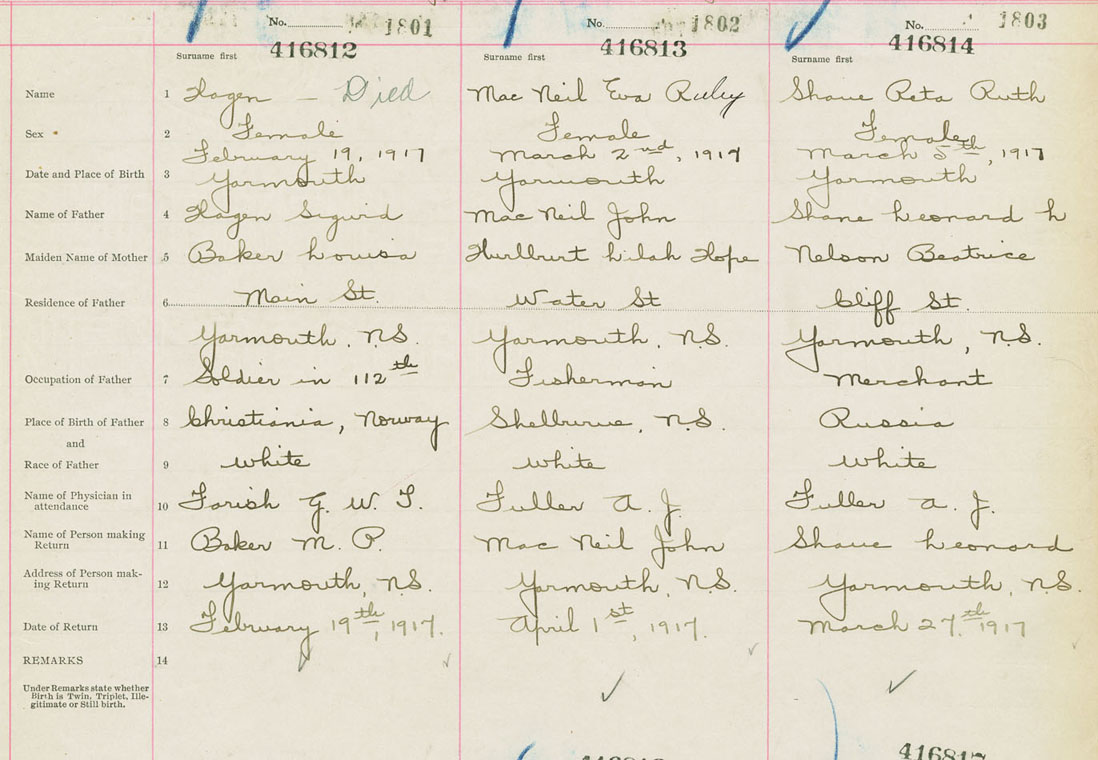 No. 1801 No. 1802 No. 1803
416812 416813 416814
Surname first Surname first Surname first
Name 1 Hagen - Died Mac Neil Eva Ruby Shane Reta Ruth
Sex 2 Female Female Female
February 19, 1917 March 2nd, 1917 March 5th, 1917
Date and Place of Birth 3 Yarmouth Yarmouth Yarmouth
Name of Father 4 Hagen Sigurd Mac Neil John Shane Leonard H
Maiden Name of Mother 5 Baker Louisa Hurlburt Lilah Hope Nelson Beatrice
Residence of Father 6 Main St. Water St Cliff St.
Yarmouth, N.S. Yarmouth, N.S. Yarmouth, N.S.
Occupation of Father 7 Soldier in 112th Fisherman Merchant
Place of Birth of Father 8 Christiania, Norway Shelburne, N.S. Russia
and
Race of Father 9 White White White
Name of Physician in
attendance 10 Farish G. W. T. Fuller A. J. Fuller A. J.
Name of Person making
Return 11 Baker M. P. Mac Neil John Shane Leonard
Address of Person mak-
ing Return 12 Yarmouth, N.S. Yarmouth, N.S. Yarmouth, N.S.
Date of Return 13 February 19th, 1917. April 1st, 1917. March 27th 1917
REMARKS 14
Under Remarks state whether
Birth is Twin, Triplet, Ille-
gitimate or Still birth.